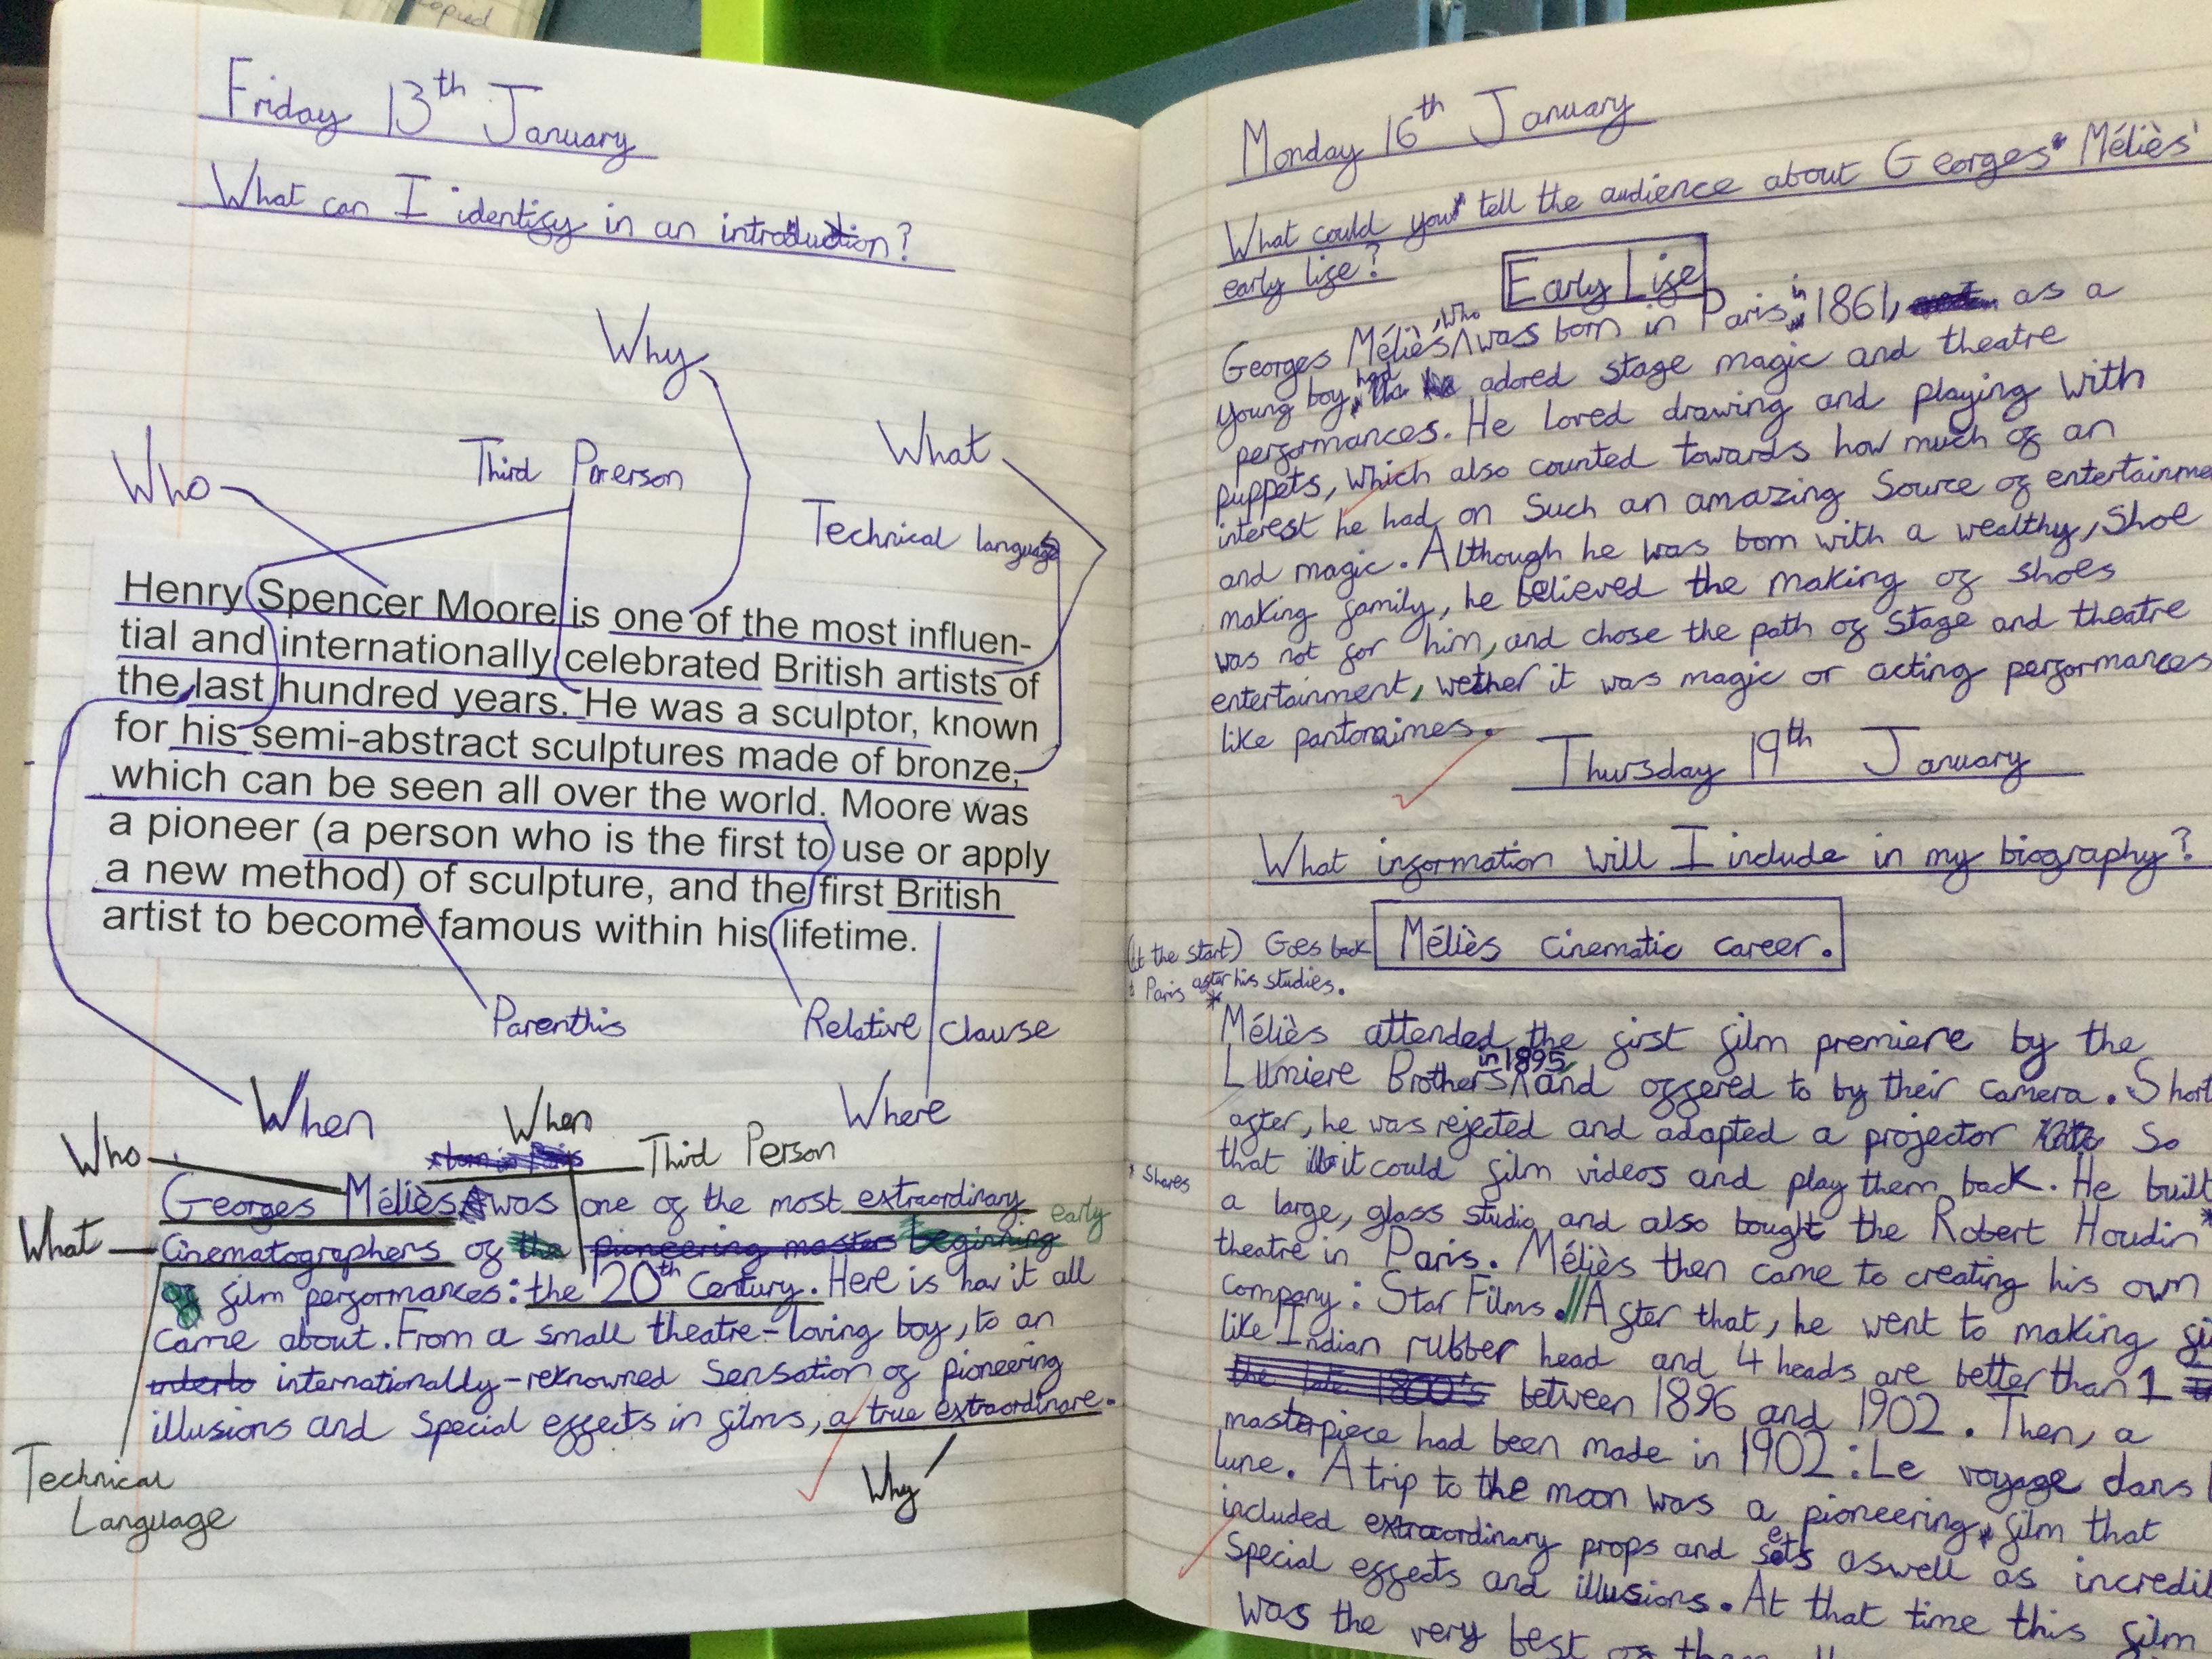 copied
Friday 13th January
What can I identify in an introduction?
Why
Who
Third Person
What
Technical language
Henry Spencer Moore is one of the most influen-
tial and internationally celebrated British artists of
the last hundred years. He was a sculptor, known
for his semi-abstract sculptures made of bronze,
which can be seen all over the world. Moore was
a pioneer (a person who is the first to use or apply
a new method) of sculpture, and the first British
artist to become famous within his lifetime.
Parenthis
Relative clause
When
Where
Who
When
Third Person
born in Paris
Georges Méliès was one of the most extraordinary
What
cinematographers of the pioneering masters beginning early
of film performances: the 20th Century. Here is how it all
came about. From a small theatre-loving boy, to an
interto internationally-reknowned sensation of pioneering
illusions and special effects in films, a true extraordinare.
Why
Technical
Language
Monday 16th January
What could you tell the audience about Georges Méliès'
early life?
Early Life
Georges Méliès, who was born in Paris in 1861, as a
young boy had adored stage magic and theatre
performances. He loved drawing and playing with
puppets, which also counted towards how much of an
interest he had on such an amazing source of entertainme
and magic. Although he was born with a wealthy, shoe
making family, he believed the making of shoes
was not for him, and chose the path of stage and theatre
entertainment, wether it was magic or acting performances
like pantomimes.
Thursday 19th January
What information will I include in my biography?
(At the start) Goes back
Paris after his studies.
Méliès cinematic career.
*
Méliès attended the first film premiere by the
Lumiere Brothers in 1895 and offered to by their camera. Short
after, he was rejected and adapted a projector so
that it could film videos and play them back. He built
* shares
a large, glass studio and also bought the Robert Houdin *
theatre in Paris. Méliès then came to creating his own
company: Star Films.//After that, he went to making fi
like Indian rubber head and 4 heads are better than 1
the late 1800's between 1896 and 1902. Then, a
masterpiece had been made in 1902: Le voyage dans l
lune. A trip to the moon was a pioneering film that
included extraordinary props and sets aswell as incredib
special effects and illusions. At that time this film
was the very best of them